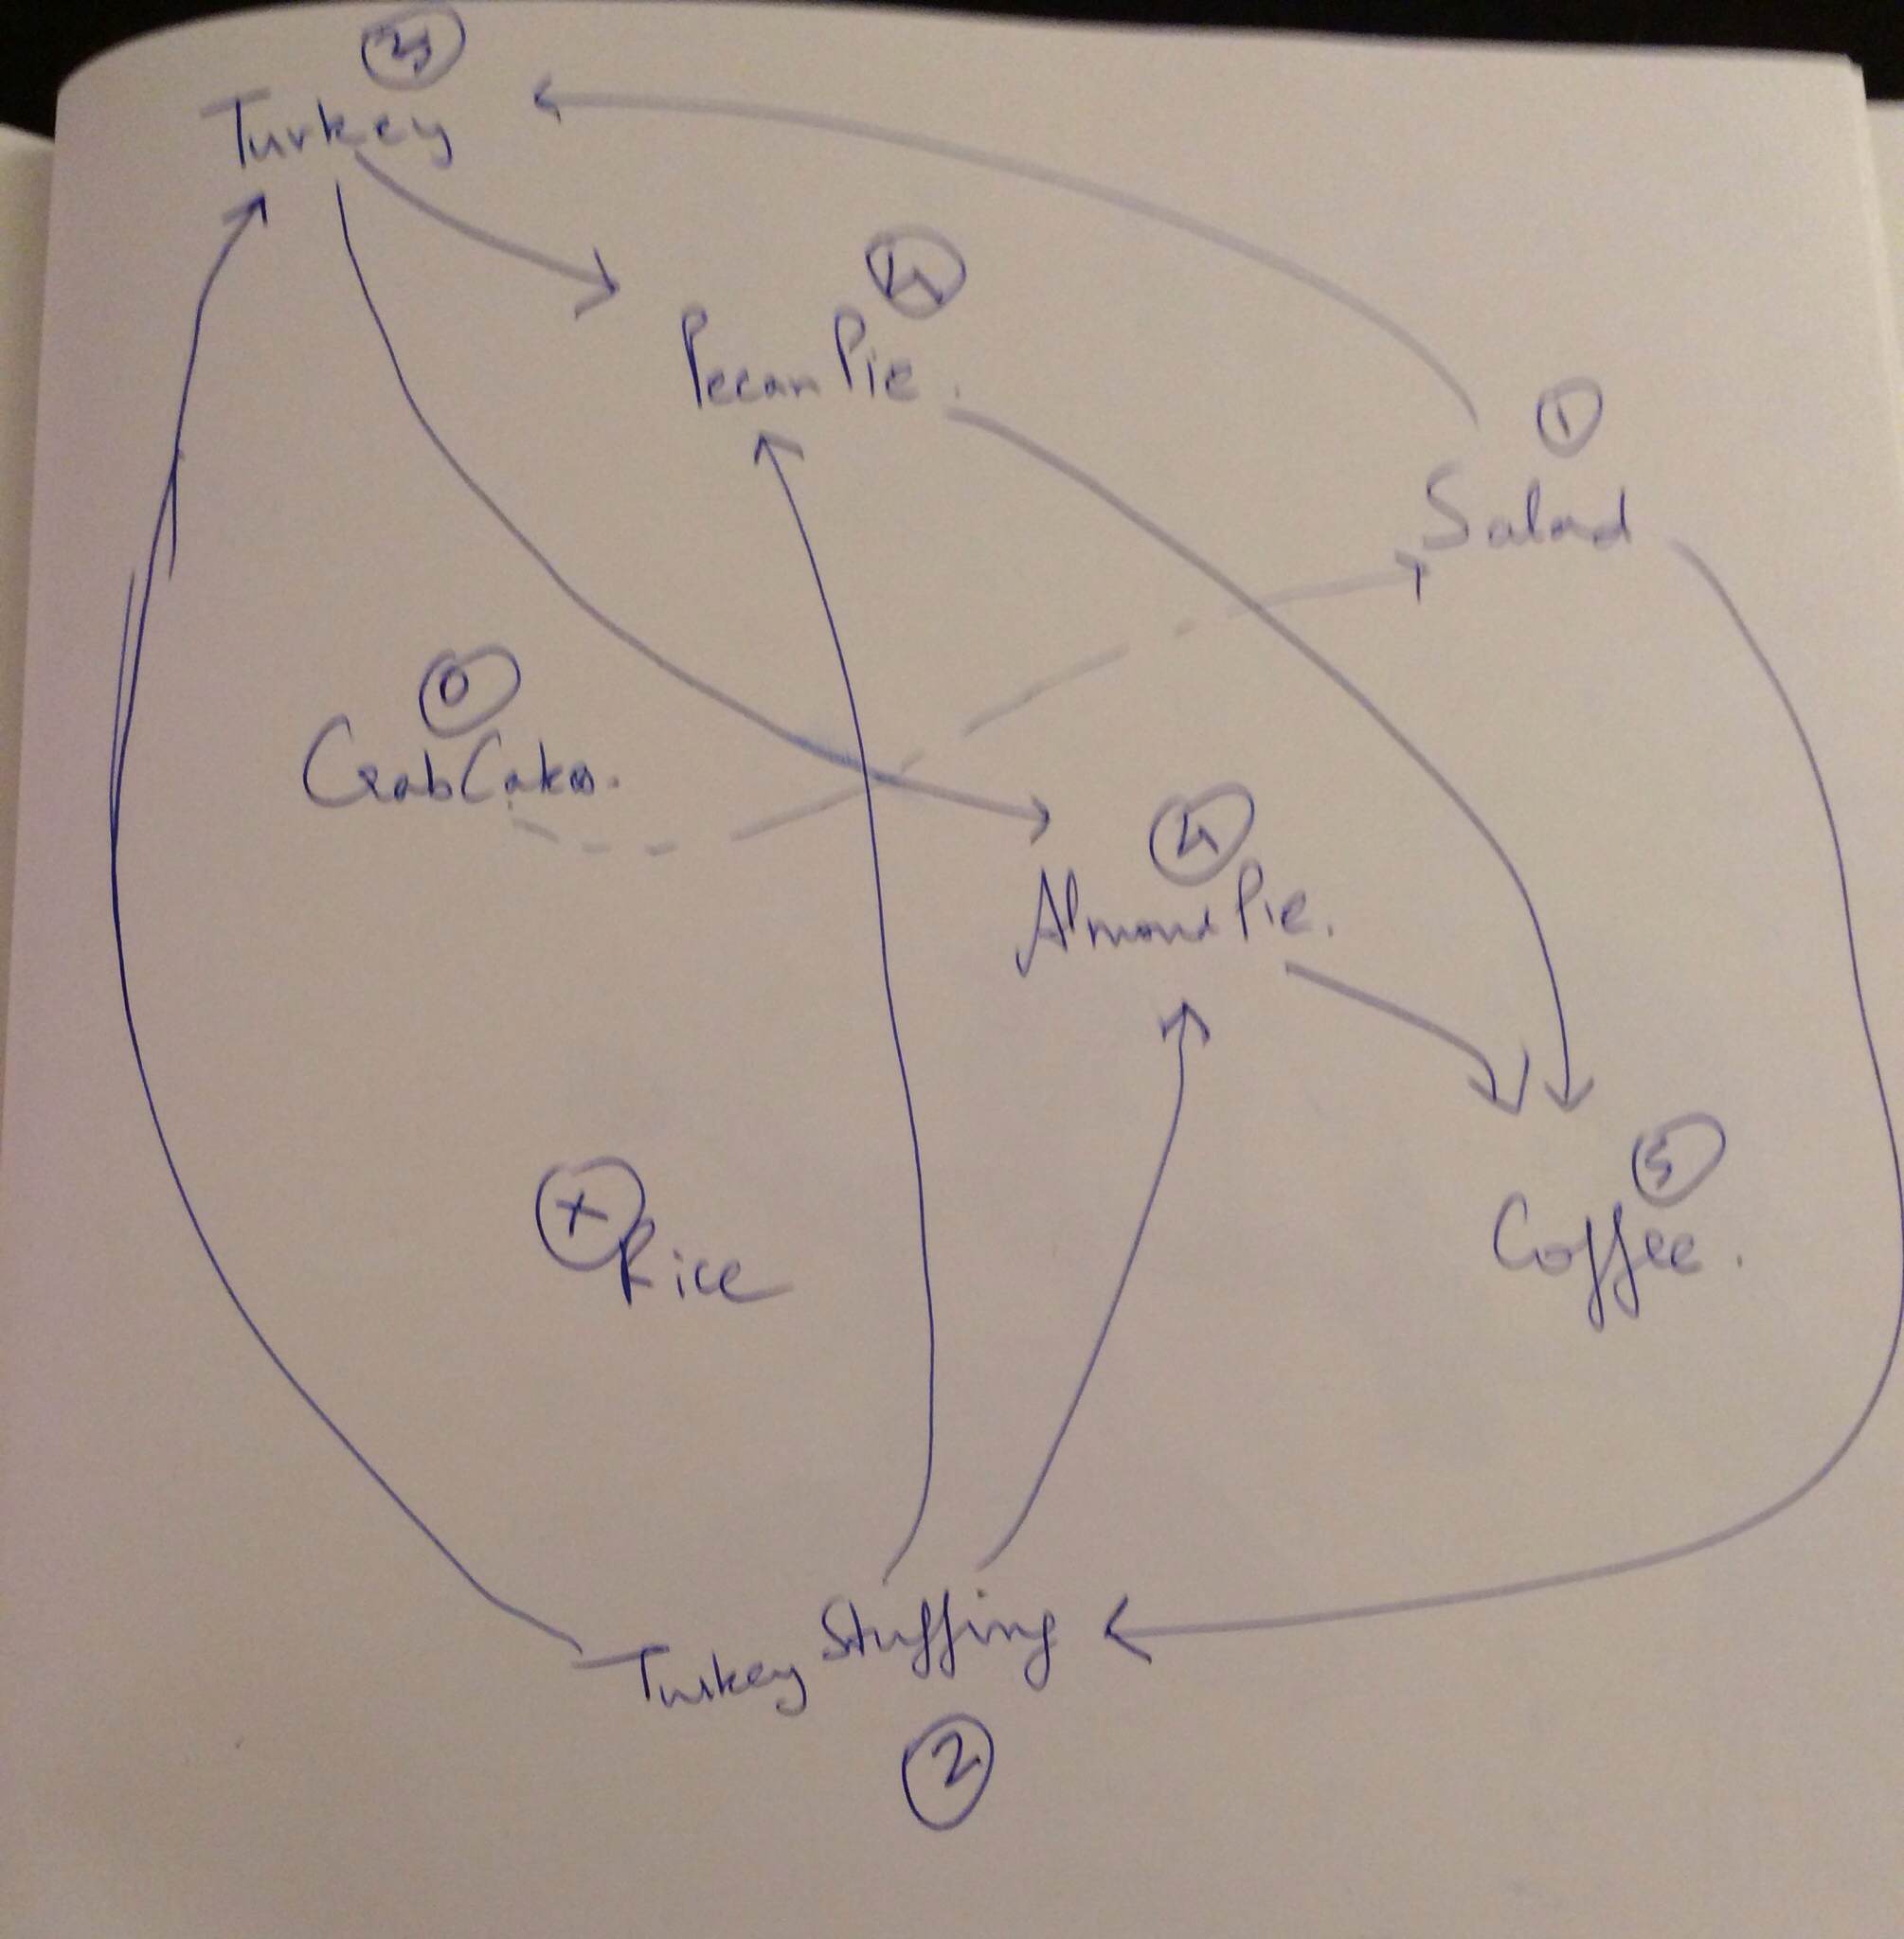 3
Turkey
4
Pecan Pie.
1
Salad
0
Crab Cakes.
4
Almond Pie.
5
Coffee.
X
Rice
Turkey Stuffing
2